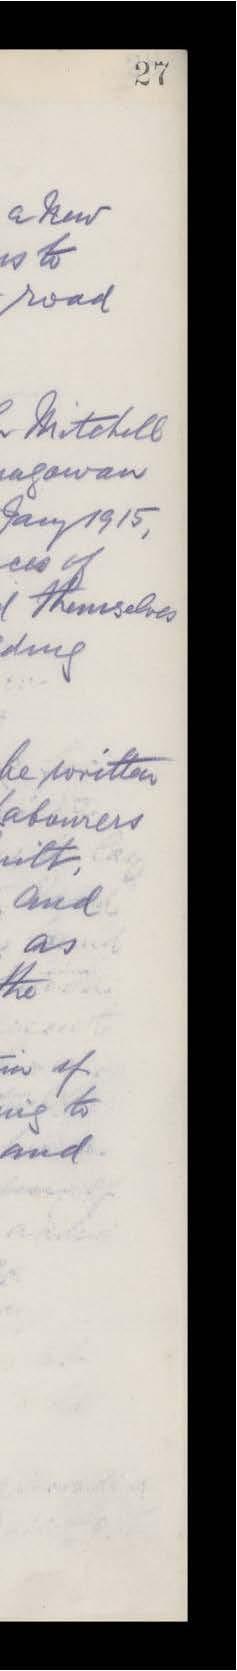 27
a new
ns to
road
Mitchell
nagowan
Jany 1915,
ces of
d themselves
ding
he written
labourers
uilt,
and
as
the
of
ing to
and